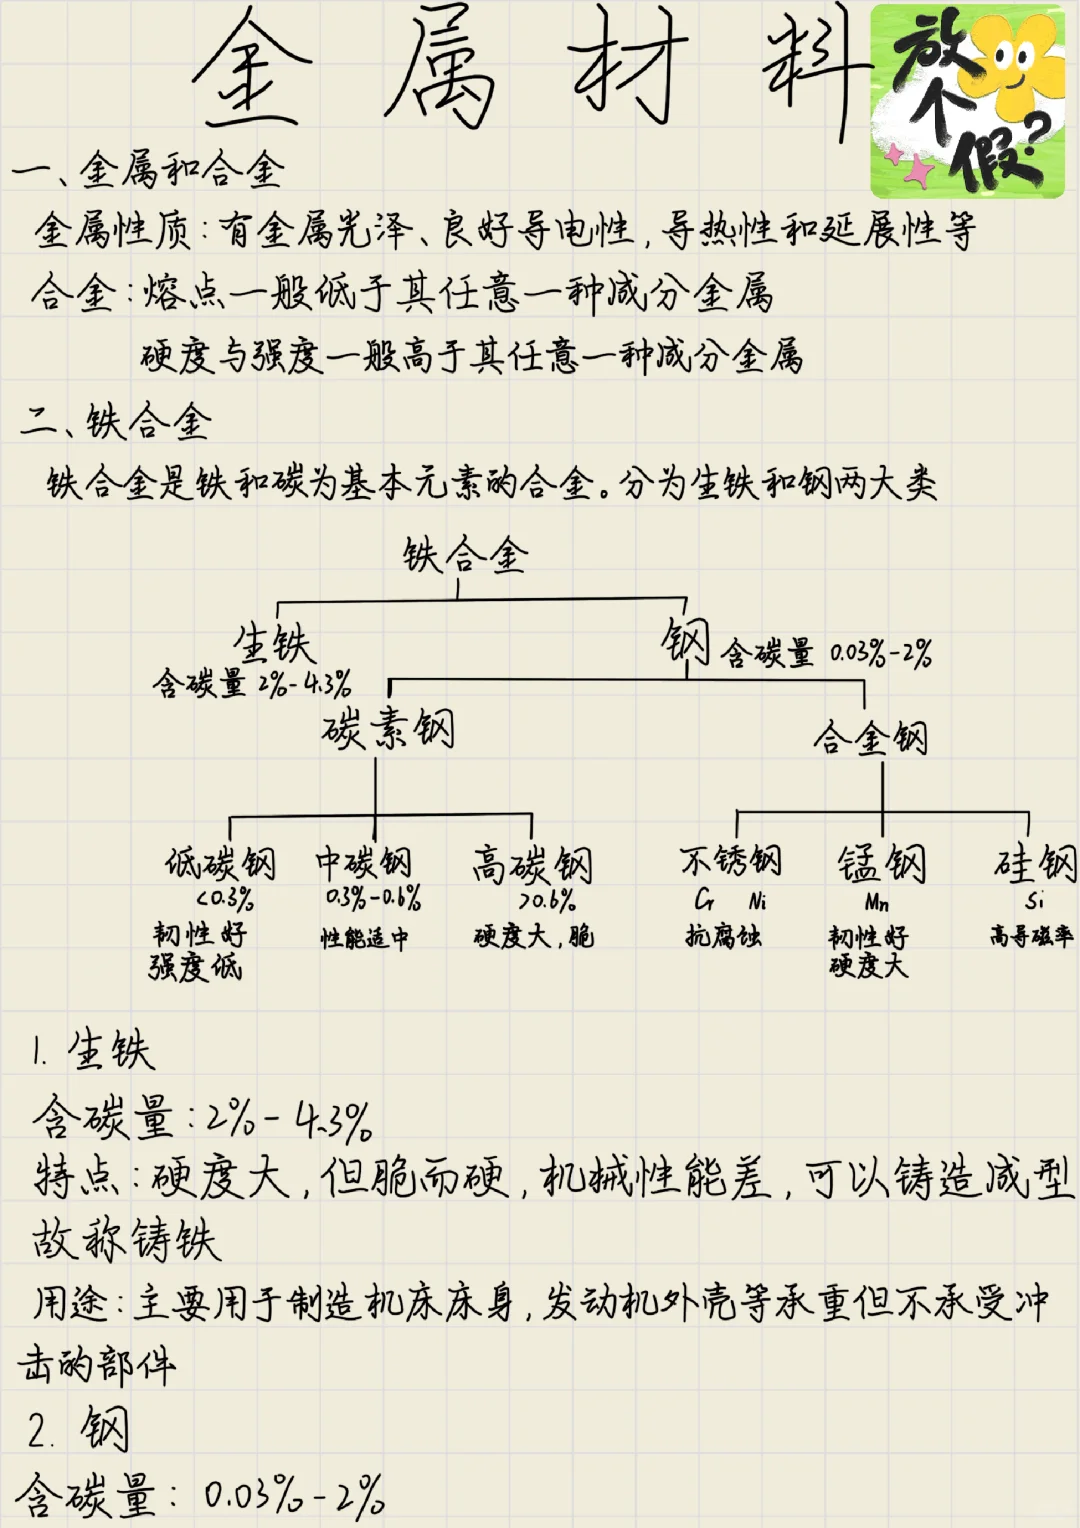 金属材料
放
个
假?
一、金属和合金
金属性质:有金属光泽、良好导电性,导热性和延展性等
合金:熔点一般低于其任意一种成分金属
硬度与强度一般高于其任意一种成分金属
二、铁合金
铁合金是铁和碳为基本元素的合金。分为生铁和钢两大类
铁合金
生铁
含碳量 2%-4.3%
钢 含碳量 0.03%-2%
碳素钢
合金钢
低碳钢 中碳钢 高碳钢 不锈钢 锰钢 硅钢
<0.3% 0.3%-0.6% >0.6% Cr Ni Mn Si
韧性好 性能适中 硬度大,脆 抗腐蚀 韧性好 高导磁率
强度低 硬度大
1. 生铁
含碳量:2%-4.3%
特点:硬度大,但脆而硬,机械性能差,可以铸造成型
故称铸铁
用途:主要用于制造机床床身,发动机外壳等承重但不承受冲
击的部件
2. 钢
含碳量: 0.03%-2%